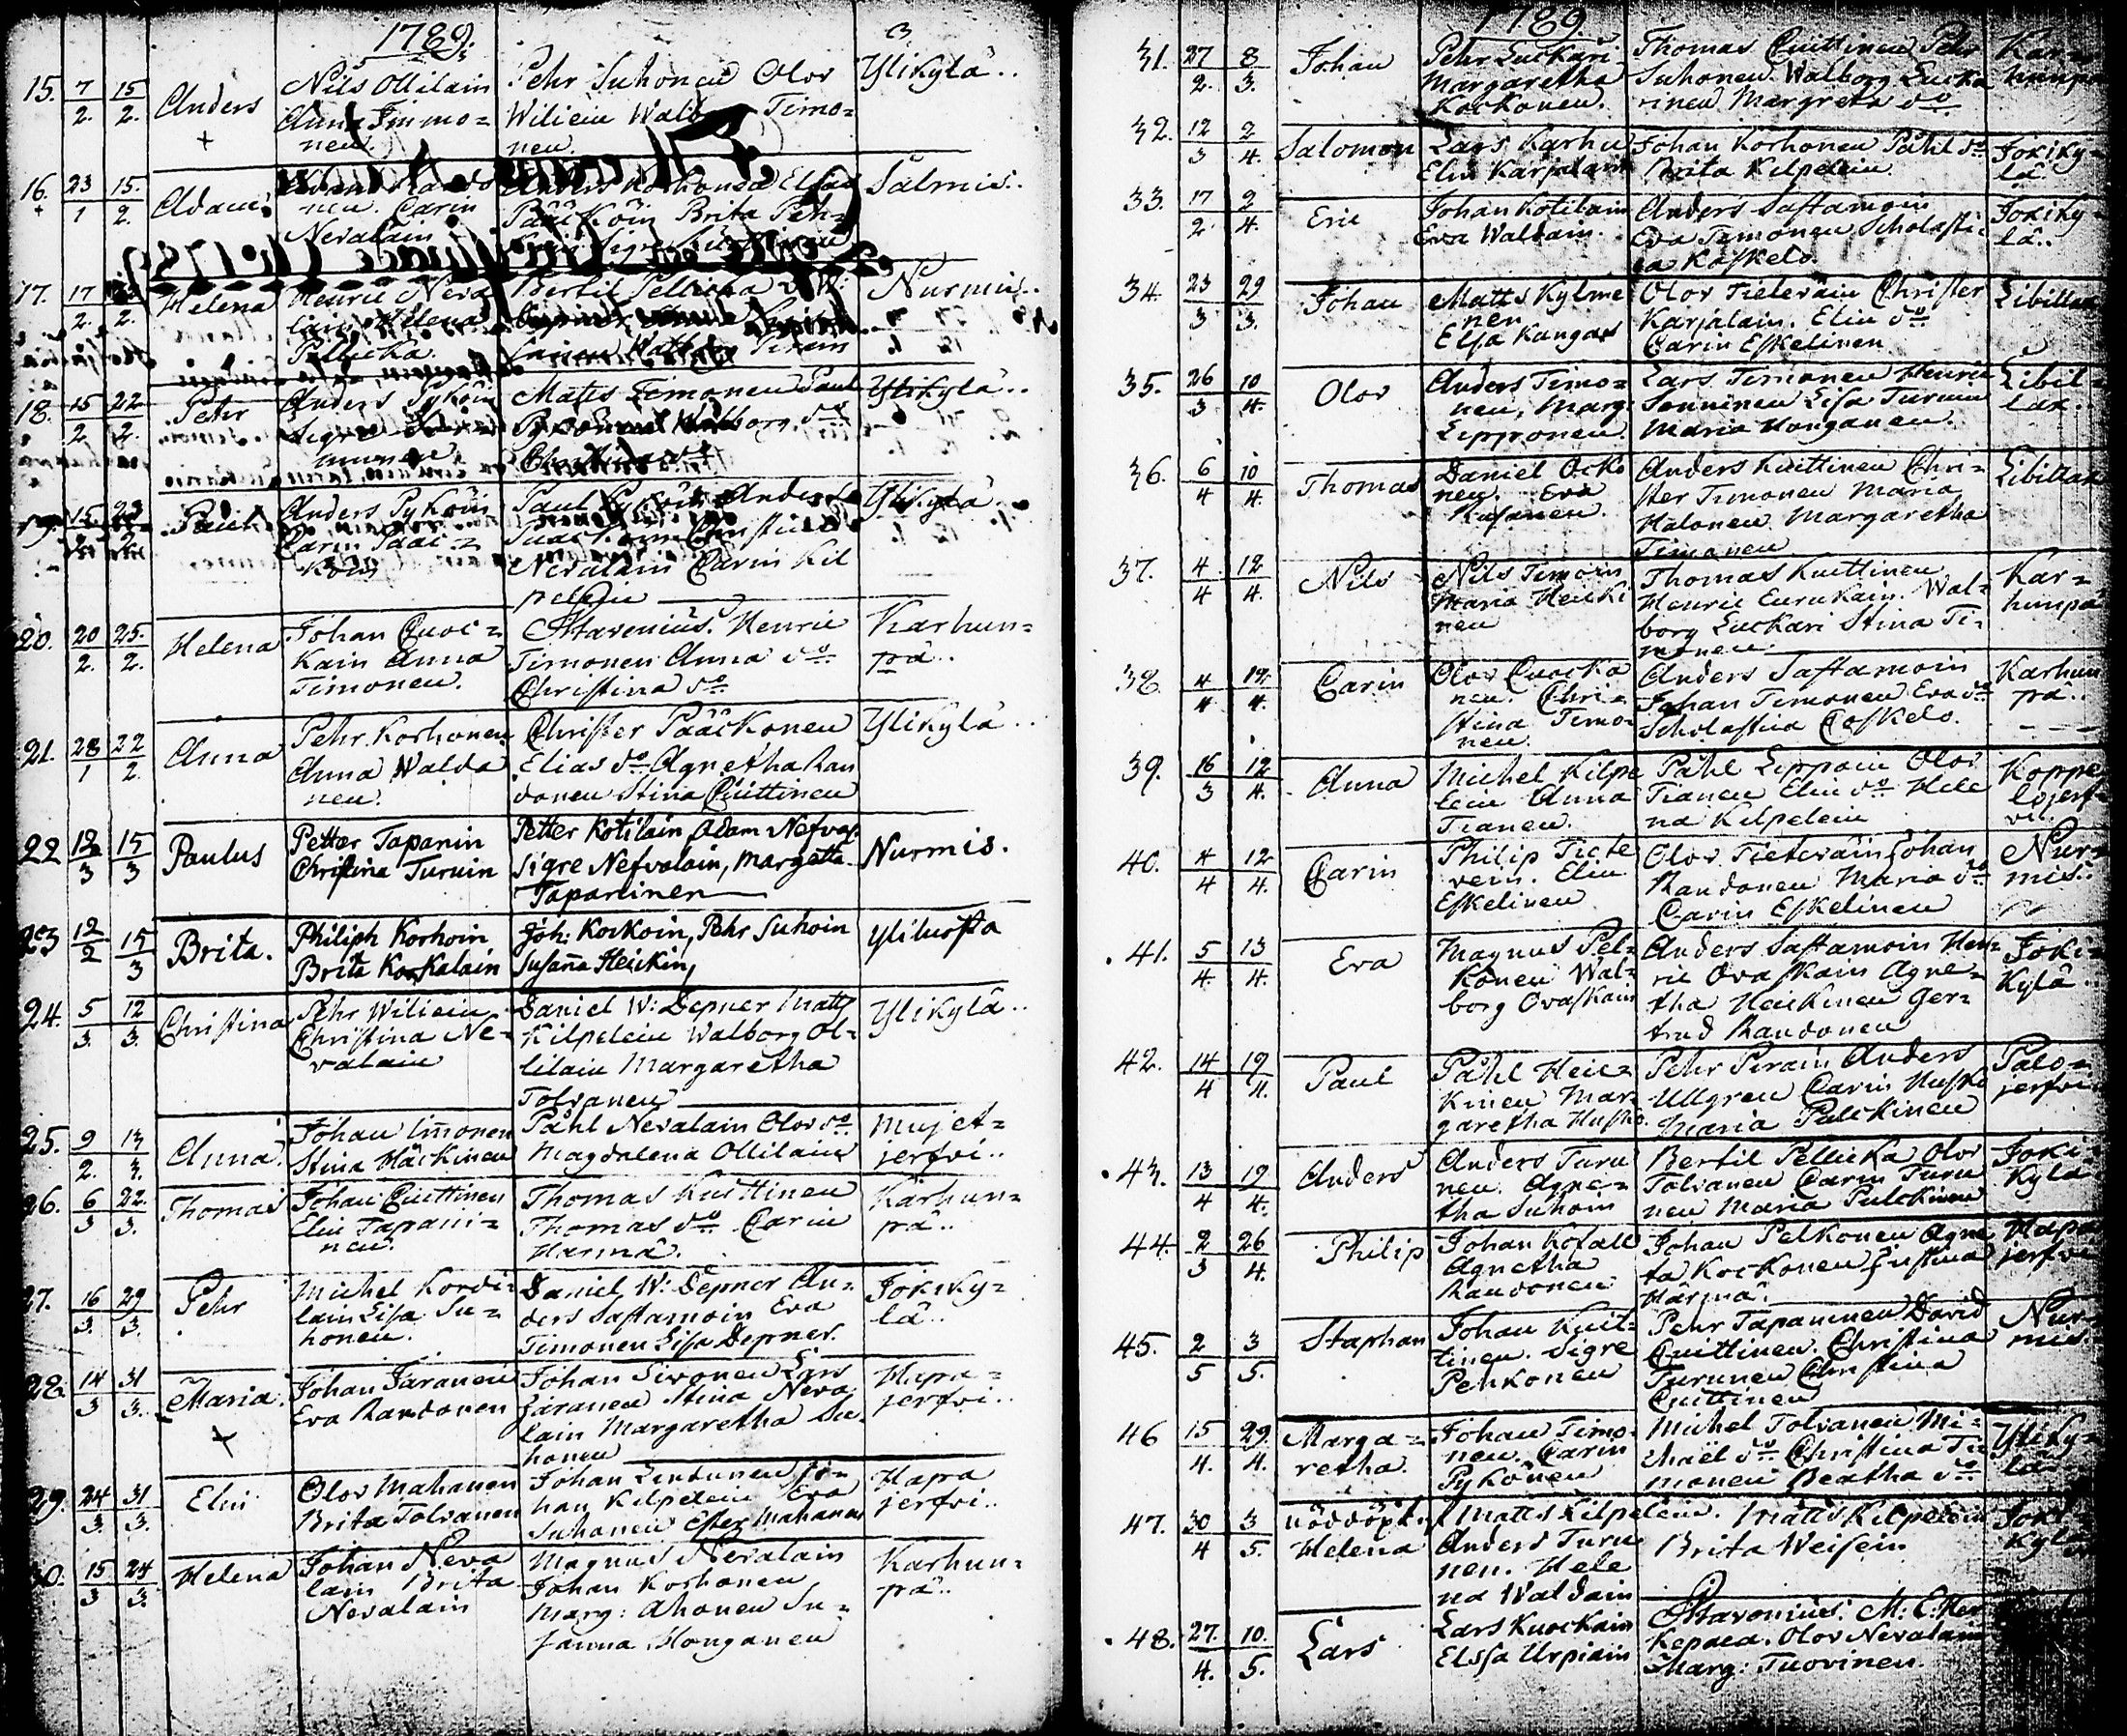 1789. 3
15. 7/2. 15/2. Anders + Nils Ollilain Anna Jmmo= nen. Pehr Suhonen Olov Wiliein Walb Timo= nen. Ylikylä..
16. + 23/1 15./2. Adam. nen. Carin Nevalain Anders Korhonen Elias Pääcköin Brita Peh= Salmis..
17. 17/2. Helena Henric Neva lain Helena Pellicka. Bertil Pellicka Nurmis..
18. 15/2 22/2. Pehr Anders Pyköin Sigre Matts Timonen Paul Walborg do Ylikylä..
19. 15/2 22/2 Paul Anders Pyköin Carin Pääc= köin Paul Pyköin Anders Pääcköin Christina Nevalain Carin Kil pelein Ylikylä
20. 20/2. 25./2. Helena Johan Quoc= kain Anna Timonen. Stavenius. Henric Timonen Anna do Christina do Karhun= pä..
21. 28/1 22/2. Anna Pehr Korhonen Anna Walda nen. Christer Pääckonen Elias do Agnetha Ran donen Stina Quittinen Ylikylä..
22 12/3 15/3 Paulus Petter Tapanin Christina Turuin Petter Kotilain, Adam Nefval. Sigre Nefvalain, Margetta Tapaninen Nurmis.
23 12/2 15/3 Brita. Philiph Korhoin Brita Korkalain Joh: Korkoin, Pehr Suhoin Susana Heickin, Ylikylä
24. 5/3. 12/3. Christina Pehr Wiliein Christina Ne= valain Daniel W: Depner Matts Kilpelein Walborg Ol= lilain Margaretha Tolvanen Ylikylä..
25. 9/2. 13/3. Anna. Johan Immonen Stina Häckinen Påhl Nevalain Olov do Magdalena Ollilain Mujet= jerfvi..
26. 6/3 22./3. Thomas Johan Quittinen Elin Tapani= nen. Thomas Kuittinen Thomas do Carin Harma. Karhun= pä..
27. 16/3. 29/3. Pehr Michel Kordi= lain Lisa Su= honen. Daniel W: Depner An= ders Sastamoin Eva Timonen Lisa Depner. Jokiky= lä..
28. 14/3 31/3. Maria. + Johan Jaranen Eva Randonen Johan Sivonen Lars Jaranen Stina Neva lain Margaretha Su= honen Hapa= jerfvi..
29. 24/3. 31/3. Elin Olov Mahanen Brita Tolvanen Johan Lindunen Jo= han Kilpelein Eva Suhonen Ester Mahanen Hapa jerfvi..
30. 15/3 24/3. Helena Johan Neva lain Brita Nevalain Magnus Nevalain Johan Korhonen Marg: Ahonen Su= sanna Honganen Karhun= pä..
1789.
31. 27/2. 8/3. Johan Pehr Luckari Margaretha Kockonen. Thomas Quittinen Pehr Suhonen. Walborg Lucka rinen Margreta do Kar= hunpä
32. 12/3 2/4. Salomon Lars Karhu Elin Karjalain Johan Korhonen Påhl do Brita Kilpelein Jokiky= lä.
33. 17/2 2/4. Eric Johan Kotilain Eva Waldain. Anders Sastamoin Eva Timonen Scholasti ca Koskelo. Jokiky= lä..
34. 23/3 29/3. Johan Matts Kylme nen Elsa Kangas Olov Tieteväin Christer Karjalain. Elin do Carin Eskelinen Libillax
35. 26/3 10/4. Olov Anders Timo= nen, Marg: Lipponen. Lars Timonen Henric Sonninen Lisa Turuin Maria Honganen. Libil= lax..
36. 6/4 10/4. Thomas Daniel Ocko nen. Eva Anders Kuittinen Chri= ster Timonen Maria Halonen Margaretha Timonen Libillax
37. 4/4 12/4. Nils Nils Timoin Maria Heicki nen Thomas Kuittinen Henric Eurukain. Wal= borg Luckari Stina Ti= monen. Kar= hunpä
38. 4/4 12/4. Carin Olov Quocka nen. Chri= stina Timo= nen. Anders Sastamoin Johan Timonen Eva do Scholastica Coskelo. Karhun pä..
39. 16/3 12/4. Anna Michel Kilpe lein Anna Tianen. Påhl Lippoin Olov Tianen Elin do Hele na Kilpelein Koppe lojerf= vi.
40. 4/4 12/4. Carin Philip Tiete vein. Elin Eskelinen Olov Tieteväin Johan Randonen Maria do Carin Eskelinen Nur= mis..
41. 5/4. 13/4. Eva Magnus Pel= konen Wal= borg Ovaskain Anders Sastamoin Hen= ric Ovaskain Agne= tha Heickinen Ger= trud Randonen Joki= Kylä.
42. 14/4 19/4. Paul Påhl Heic= kinen Mar= garetha Husko. Pehr Pirain Anders Ullgren Carin Husko Maria Pulckinen Palo= jerfvi
43. 13/4 19/4. Anders Anders Turu nen. Agne= tha Suhoin Bertil Pellicka Olov Tolvanen Carin Turu nen Maria Pulckinen Joki= kylä
44. 2/3 26/4. Philip Johan Kotale Agnetha Randonen Johan Pelkonen Agne ta Kockonen Justina Härmä. Hapa jerfvi
45. 2/5 3/5. Staphan Johan Kuit= tinen. Sigre Penkonen Pehr Tapaninen David Quittinen. Christina Turunen Christina Quittinen Nur= mis.
46 15/4. 29/4. Marga= retha. Johan Timo= nen. Carin Pykönen Michel Tolvanen Mi= chaël do Christina Ti= monen Beatha do Ylikylä=
47. 30/4 3/5. Nöddöpt. af Matts Kilpelein. Helena Anders Turu nen. Hele na Waldain Matts Kilpelein Brita Weisein Joki= kylä
48. 27./4. 10./5. Lars Lars Kuockain Elssa Urpiain Stavonius. M: C: Her kepaea. Olov Nevalain Marg: Tuovinen.